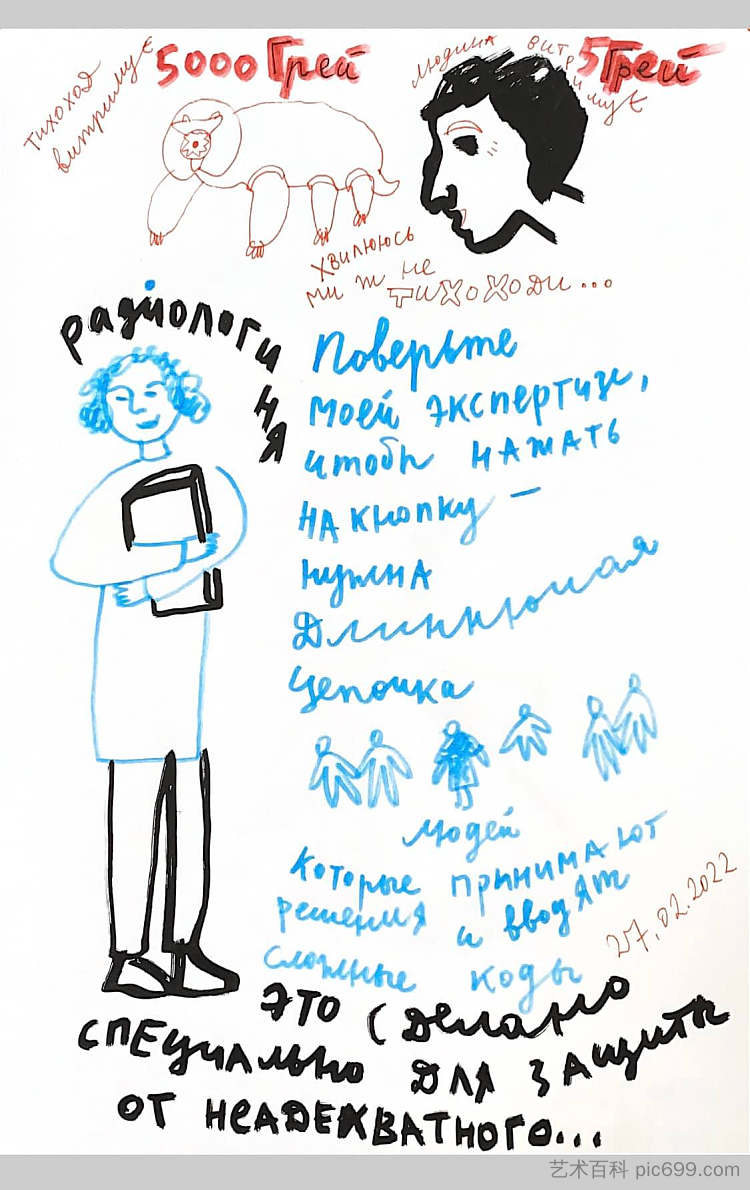 тихоход
витримує
5000 Грей
людина витримує
5 Грей
хвилююсь
ми ж не
тихоходи...
радіологи
ня
Поверьте
моей экспертизе,
чтобы нажать
на кнопку —
нужна
Длиннющая
цепочка
людей
которые принимают
решения и вводят
сложные коды
27.02.2022
это сделано
специально для защиты
от неадекватного...
艺术百科 pic699.com